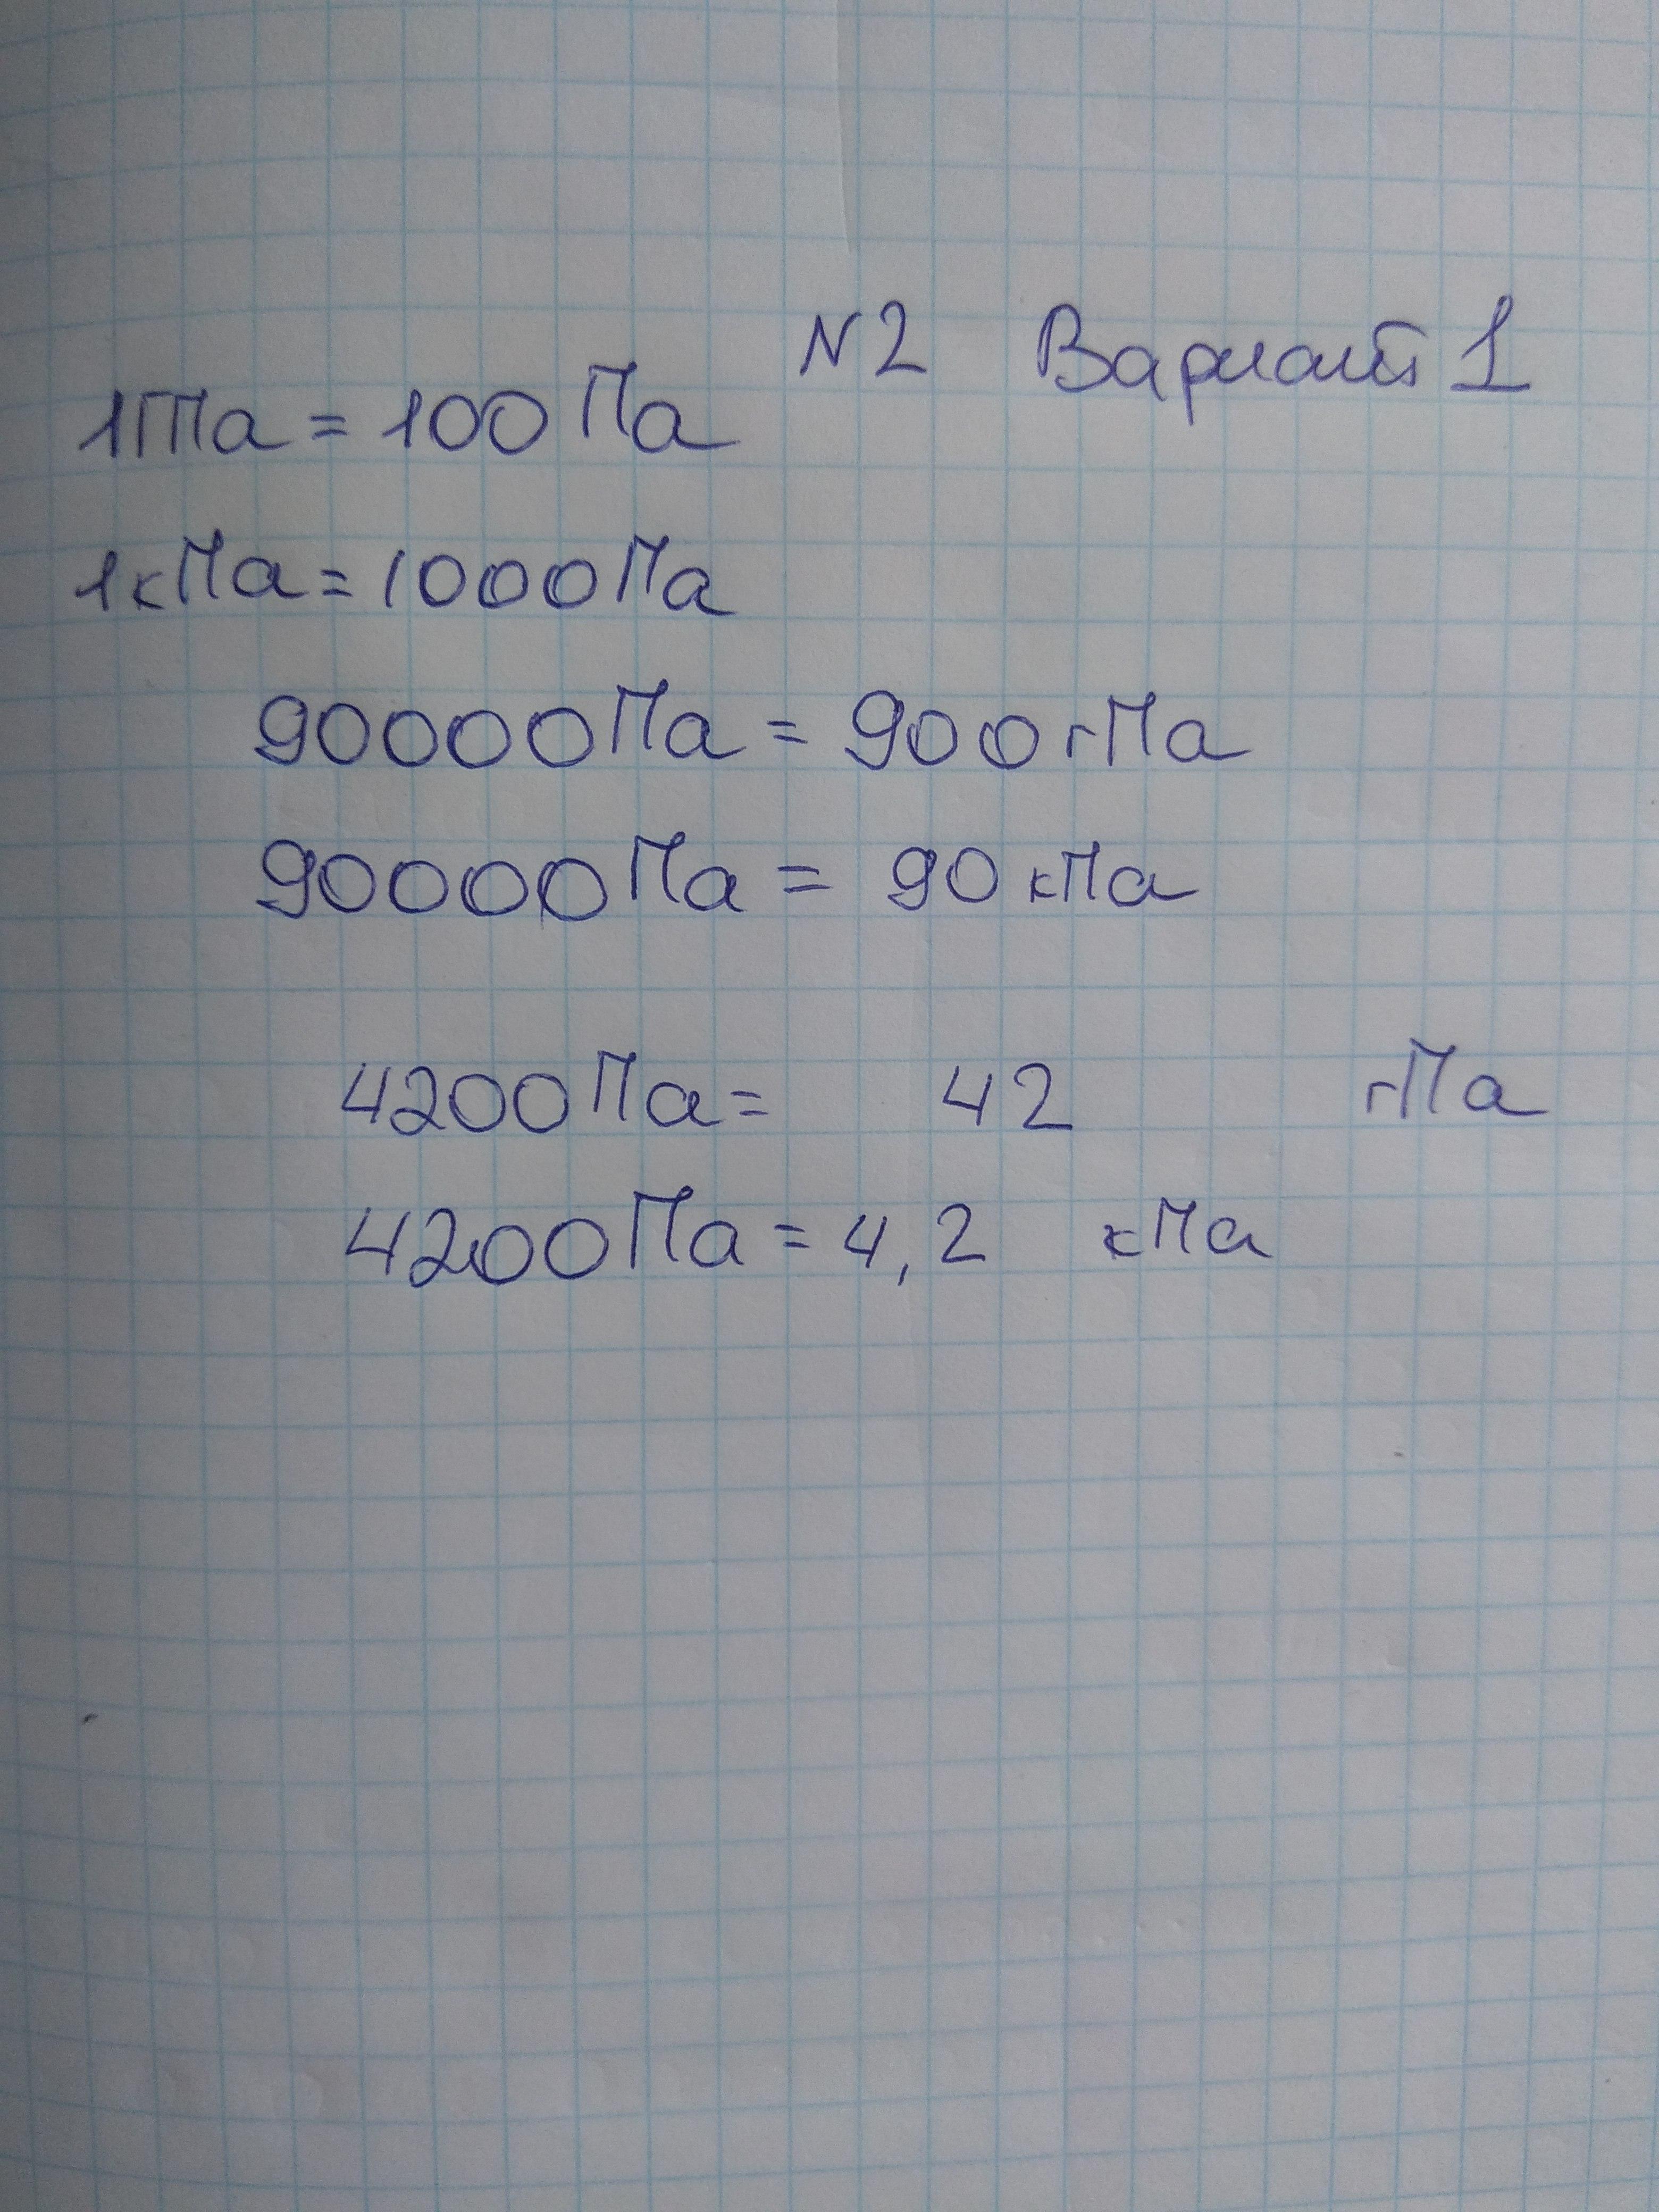 N2 Вариант 1
1гПа = 100 Па
1кПа = 1000Па
90000Па = 900гПа
90000Па = 90 кПа
4200Па = 42 гПа
4200Па = 4,2 кПа